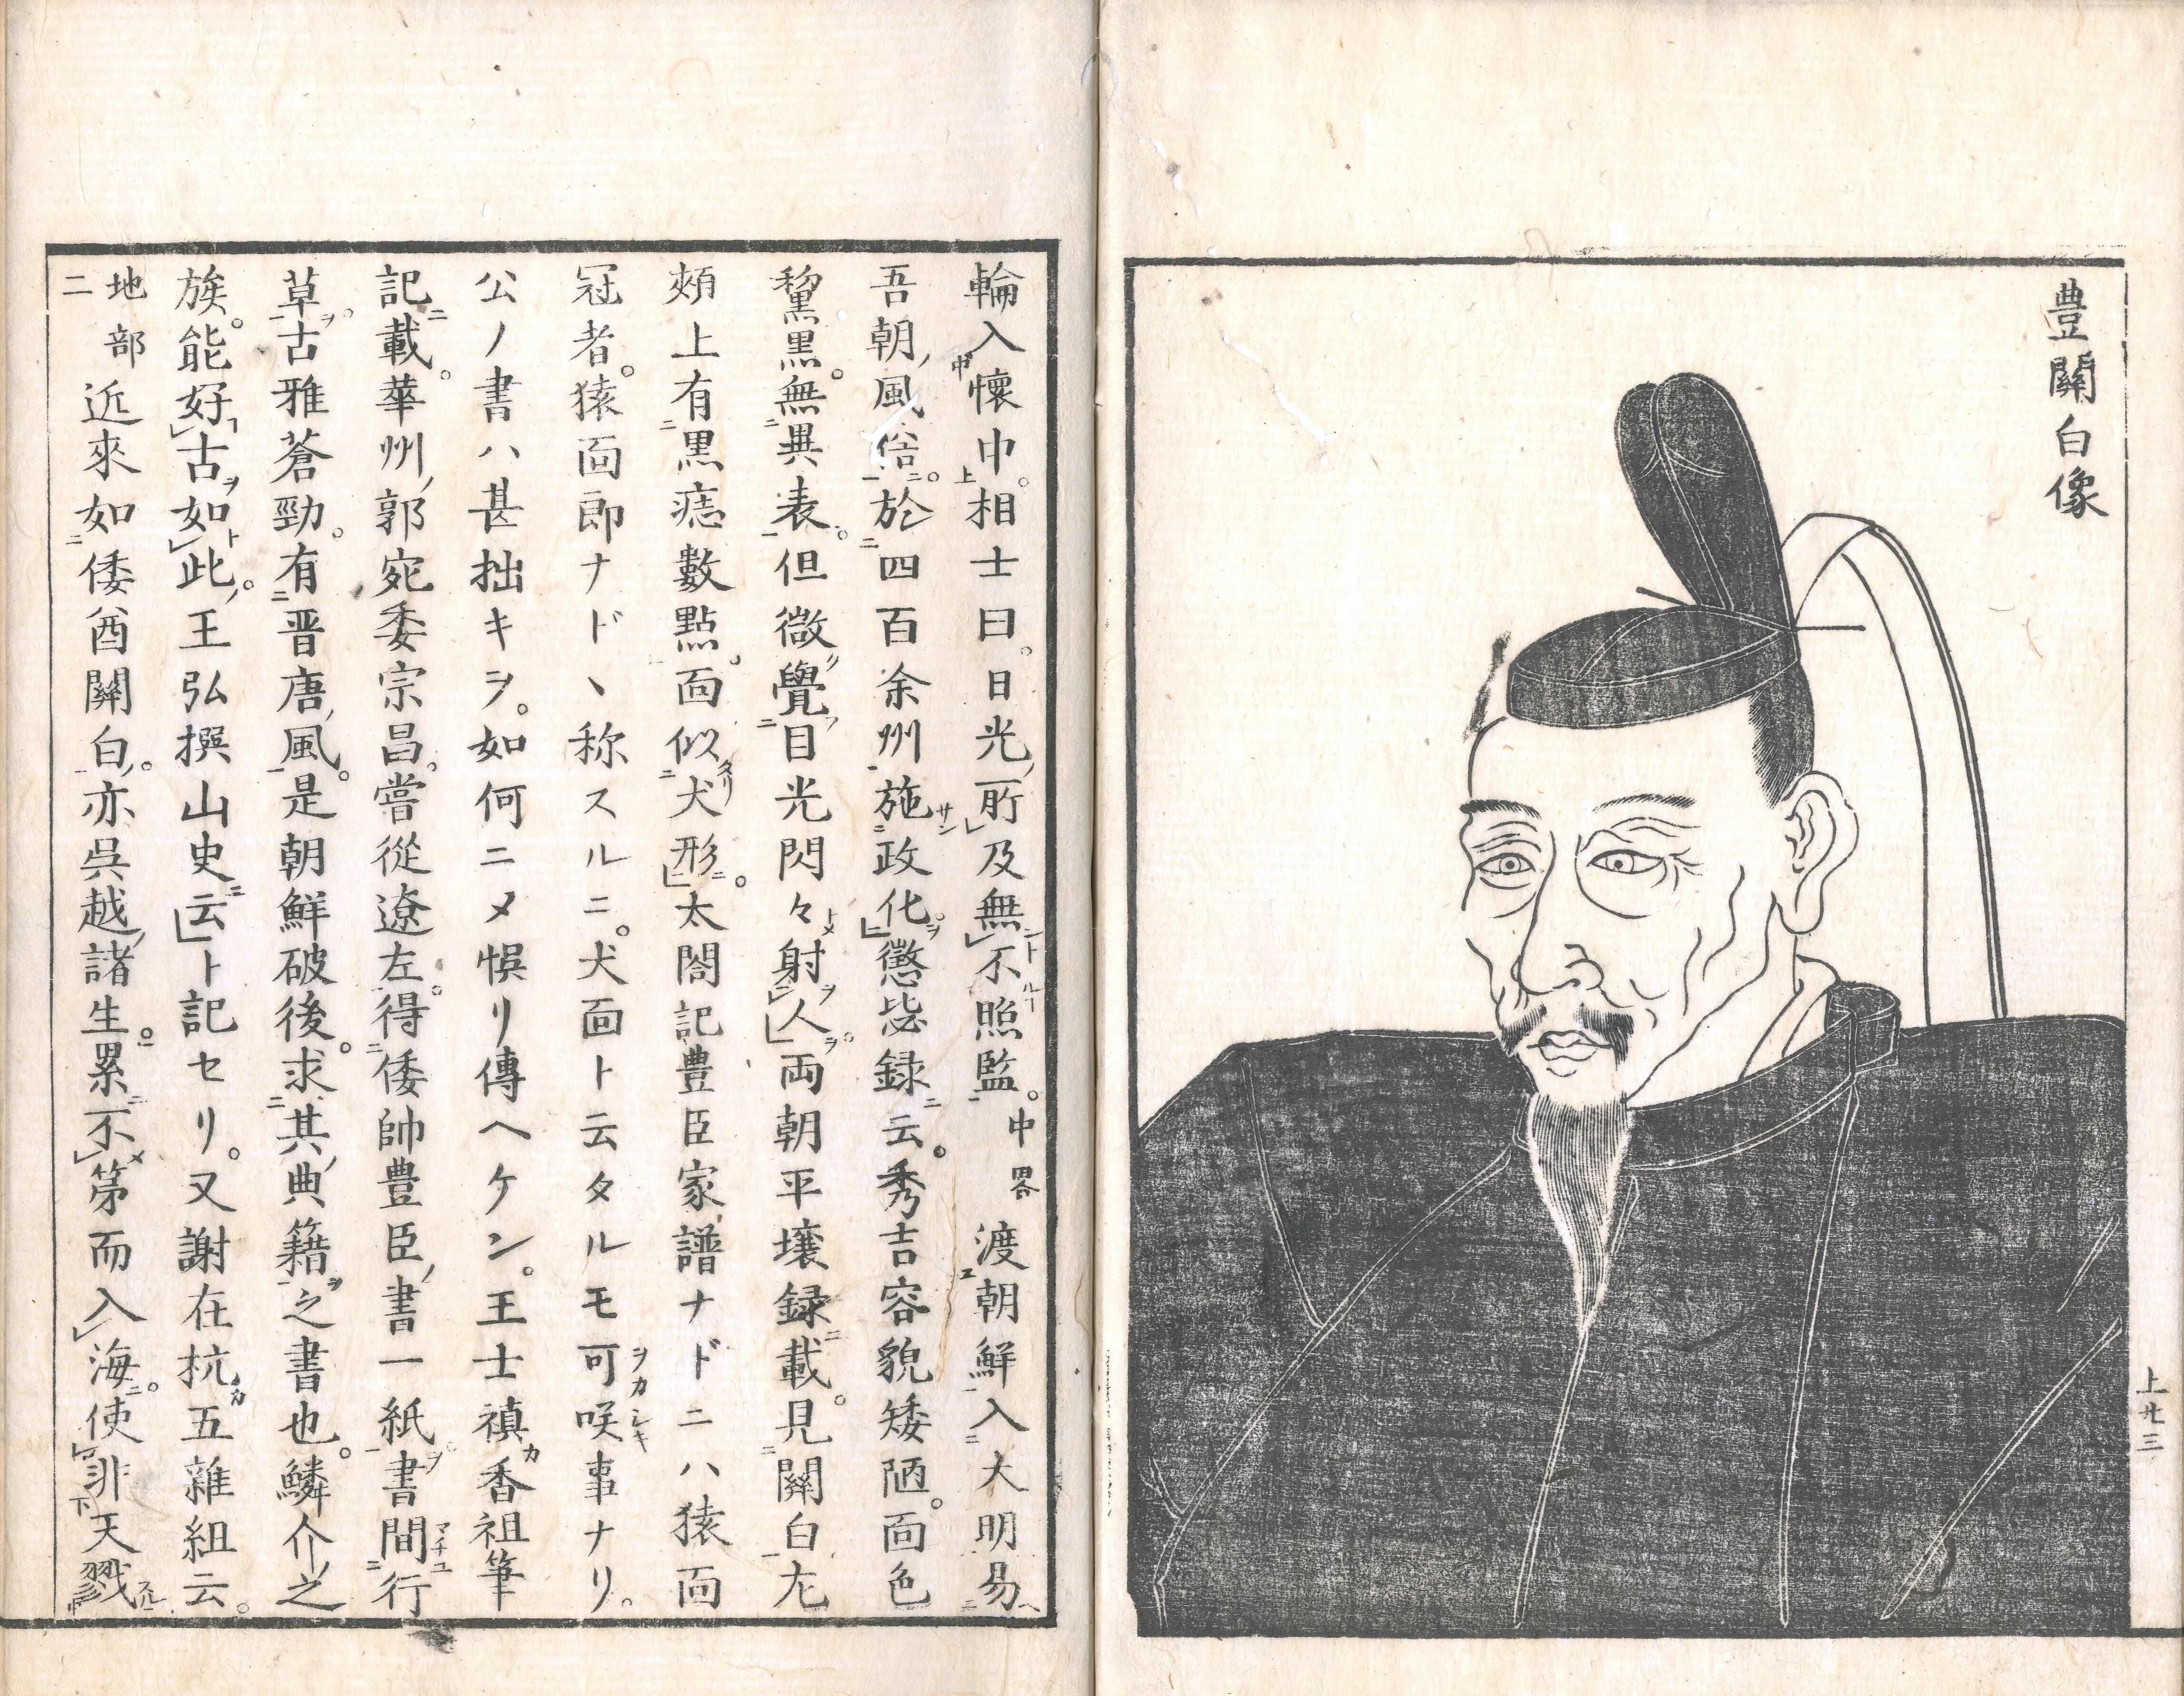 豊關白像
上廿三
輪入懷中。相士曰。日光所及無不照監。中畧渡朝鮮入大明易
吾朝風俗。於四百余州施政化。懲毖録云。秀吉容貌矮陋。面色
黧黒。無異表。但微覺目光閃々射人。両朝平壌録載。見關白左
頰上有黒痣數點。面似犬形。太閤記豊臣家譜ナドニハ猿面
冠者。猿面郎ナドヽ称スルニ。犬面ト云タルモ可咲事ナリ。
公ノ書ハ甚拙キヲ。如何ニメ悞リ傳ヘケン。王士禛香祖筆
記載。華州郭宛委宗昌。嘗從遼左。得倭帥豊臣書一紙。書間行
草。古雅蒼勁。有晋唐風。是朝鮮破後。求其典籍之書也。鱗介之
族。能好古如此。王弘撰山史云ト記セリ。又謝在杭五雜組云。
地部二近來如倭酋關白。亦呉越諸生。累不第而入海。使非天戮